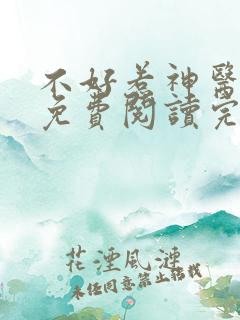 不好惹神醫
免費閱讀完
花湮風連
未经同意禁止转载